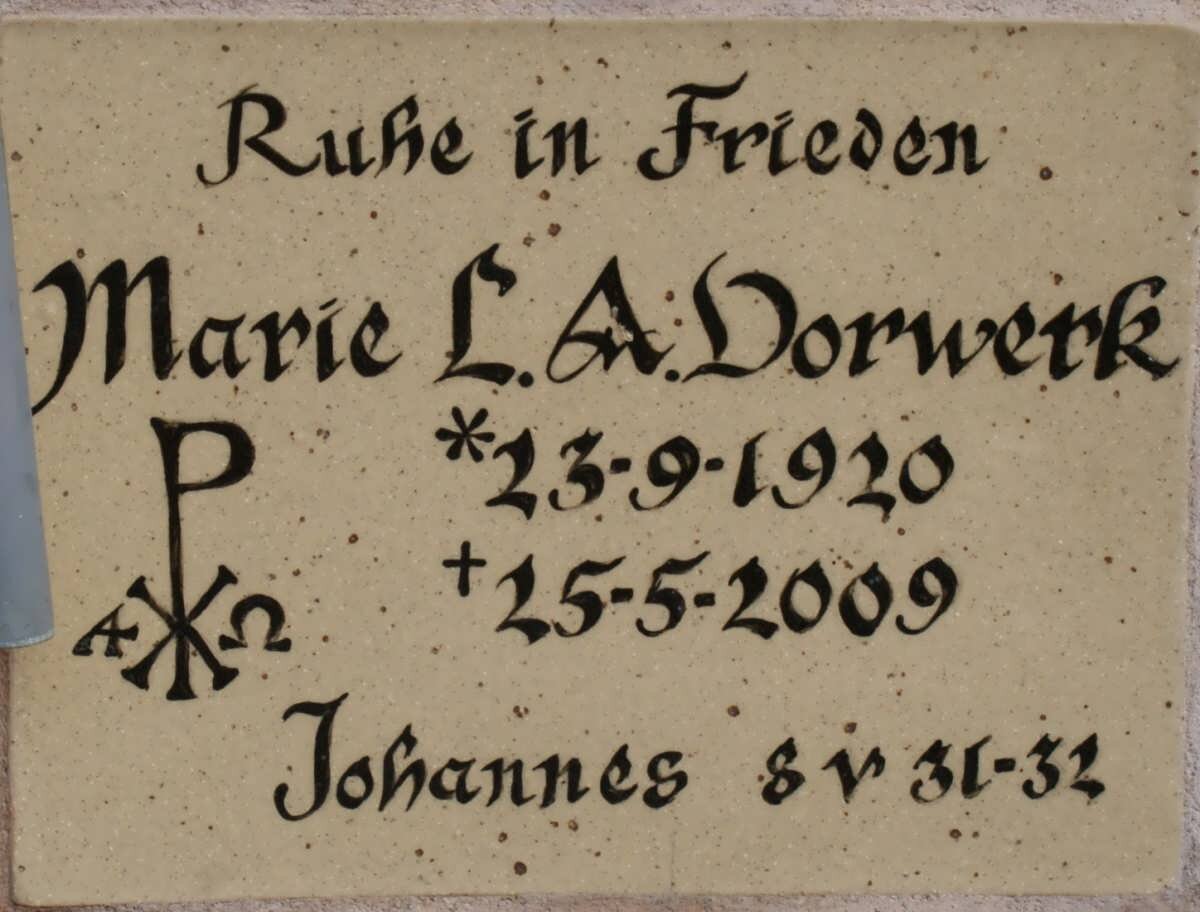 Ruhe in Frieden
Marie L. A. Vorwerk
*23-9-1920
+25-5-2009
A Ω
Johannes 8 v 31-32